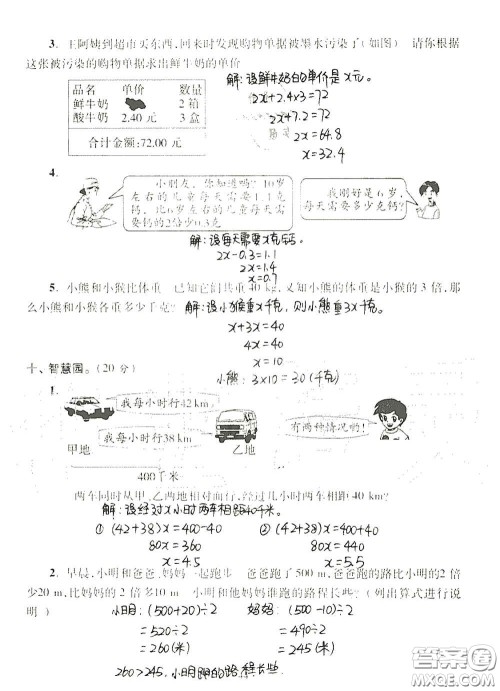 3. 王阿姨到超市买东西,回来时发现购物单据被墨水污染了(如图) 请你根据
这张被污染的购物单据求出鲜牛奶的单价
品名 单价 数量
鲜牛奶 2 箱
酸牛奶 2.40 元 3 盒
合计金额:72.00 元
解:设鲜牛奶的单价是x元。
2x+2.4×3=72
2x+7.2=72
2x=64.8
x=32.4
4.
小朋友,你知道吗?10岁
左右的儿童每天需要1.1克
钙,比6岁左右的儿童每天需
要钙的2倍少0.3克
我刚好是6岁,
每天需要多少克钙?
解:设每天需要x克钙。
2x-0.3=1.1
2x=1.4
x=0.7
5. 小熊和小猴比体重 已知它们共重 40 kg,又知小熊的体重是小猴的 3 倍,那
么小熊和小猴各重多少千克? 解:设小猴重x千克,则小熊重3x千克
x+3x=40
4x=40
x=10
小熊:3×10=30(千克)
十、智慧园。(20 分)
1.
我每小时行42 km,
我每小时行38 km
有两种情况哟!
甲地 乙地
400千米
两车同时从甲、乙两地相对而行,经过几小时两车相距 40 km?
解:设经过x小时两车相距40千米。
① (42+38)x=400-40 ② (42+38)x=400+40
80x=360 80x=440
x=4.5 x=5.5
2. 早晨,小明和爸爸、妈妈一起跑步 爸爸跑了 500 m,爸爸跑的路比小明的2 倍
少20 m,比妈妈的 2 倍多 10 m,小明和他妈妈谁跑的路程长些?(列出算式进行说
明) 小明:(500+20)÷2 妈妈:(500-10)÷2
=520÷2 =490÷2
=260(米) =245(米)
260>245,小明跑的路程长些
答案圈
MXQE.COM